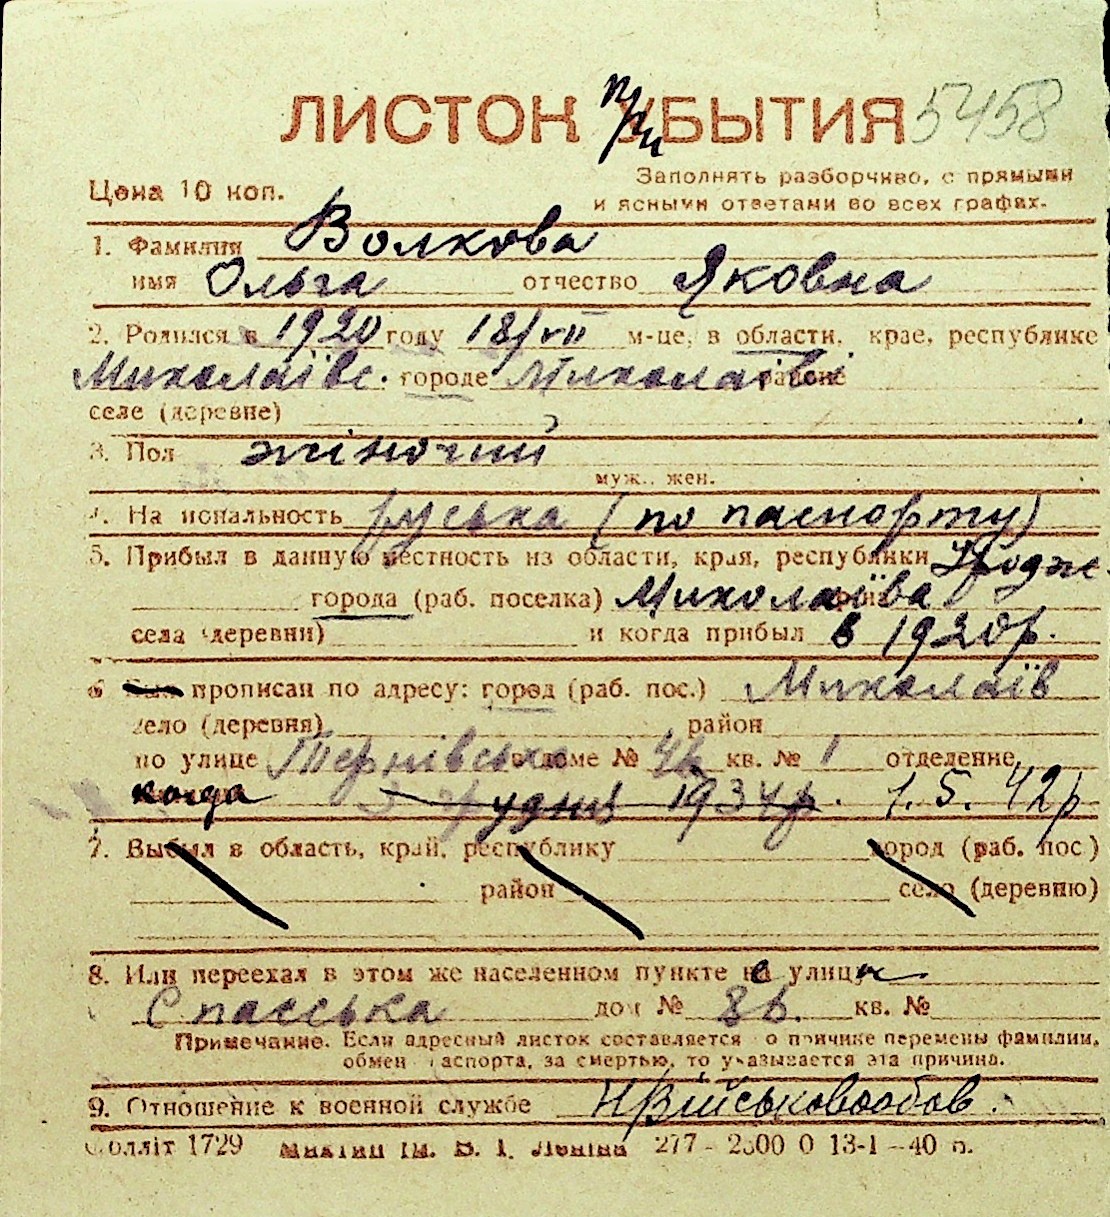 ЛИСТОК ПриБЫТИЯ 5458
Цена 10 коп.
Заполнять разборчиво, с прямыми
и ясными ответами во всех графах.
1. Фамилия Волкова
имя Ольга отчество Яковна
2. Родился в 1920 году 18/VII м-це, в области, крае, республике
Миколаївс. городе Миколаїві районе
селе (деревне)
3. Пол жіночий
муж., жен.
4. Национальность руська (по паспорту)
5. Прибыл в данную местность из области, края, республики Уродже-
города (раб. поселка) Миколаїва
села (деревни) и когда прибыл в 1920р.
6 прописан по адресу: город (раб. пос.) Миколаїв
село (деревня) район
по улице Тернівська доме № кв. № 1 отделение
когда 5 грудня 1934р. 1.5.42р
7. Выбыл в область, край, республику город (раб. пос.)
район село (деревню)
8. Или переехал в этом же населенном пункте с улицы
Спасська дом № кв. №
Примечание. Если адресный листок составляется по причине перемены фамилии,
обмен паспорта, за смертью, то указывается эта причина.
9. Отношение к военной службе Н/Військовообов.
Облліт 1729 ім. В. І. Леніна 277 - 2500 0 13-1 - 40 п.